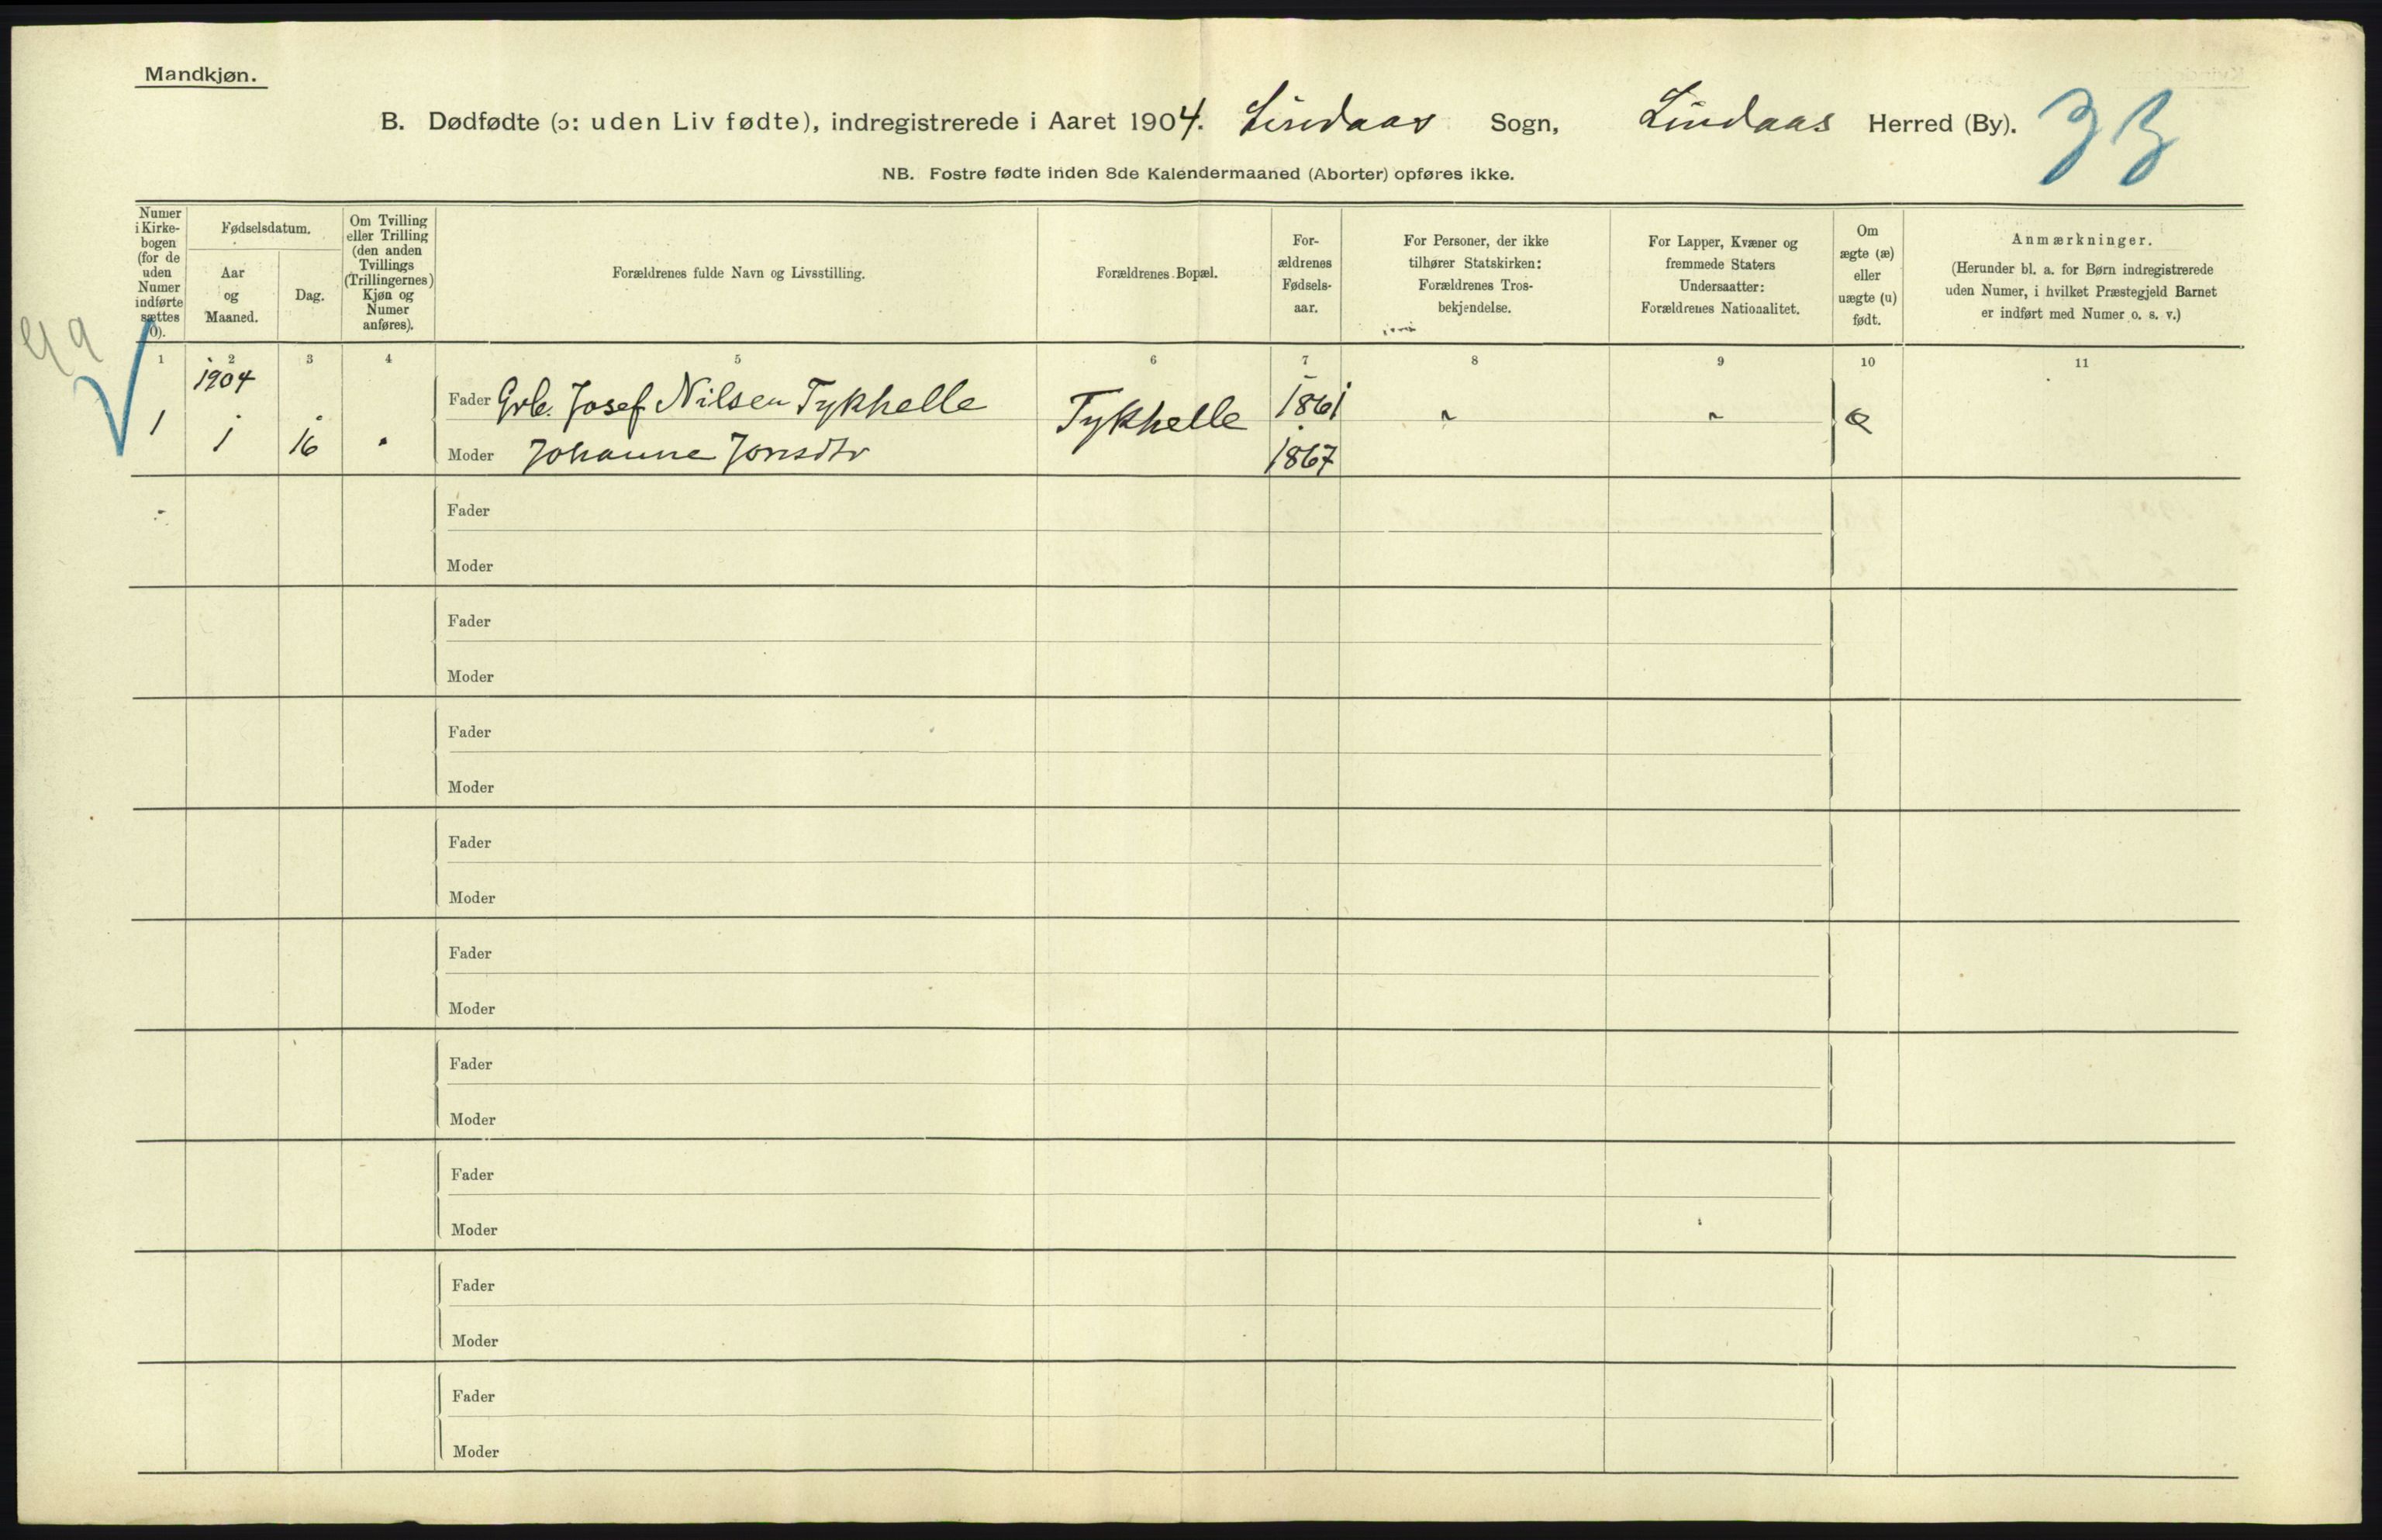 Mandkjøn.
B. Dødfødte (ɔ: uden Liv fødte), indregistrerede i Aaret 1904. Lindaas Sogn, Lindaas Herred (By). 33
NB. Fostre fødte inden 8de Kalendermaaned (Aborter) opføres ikke.
Numer
i Kirke-
bogen
(for de
uden
Numer
indførte
sættes
0).
Fødselsdatum.
Aar
og
Maaned.
Dag.
Om Tvilling
eller Trilling
(den anden
Tvillings
(Trillingernes)
Kjøn og
Numer
anføres).
Forældrenes fulde Navn og Livsstilling.
Forældrenes Bopæl.
For-
ældrenes
Fødsels-
aar.
For Personer, der ikke
tilhører Statskirken:
Forældrenes Tros-
bekjendelse.
For Lapper, Kvæner og
fremmede Staters
Undersaatter:
Forældrenes Nationalitet.
Om
ægte (æ)
eller
uægte (u)
født.
Anmærkninger.
(Herunder bl. a. for Børn indregistrerede
uden Numer, i hvilket Præstegjeld Barnet
er indført med Numer o. s. v.)
1 2 3 4 5 6 7 8 9 10 11
1904
Fader Grb. Josef Nilsen Tykhelle Tykhelle 1861 " " æ
1 1 16 Moder Johanne Jonsdtr 1867
Fader
Moder
Fader
Moder
Fader
Moder
Fader
Moder
Fader
Moder
Fader
Moder
Fader
Moder
Fader
Moder
Fader
Moder